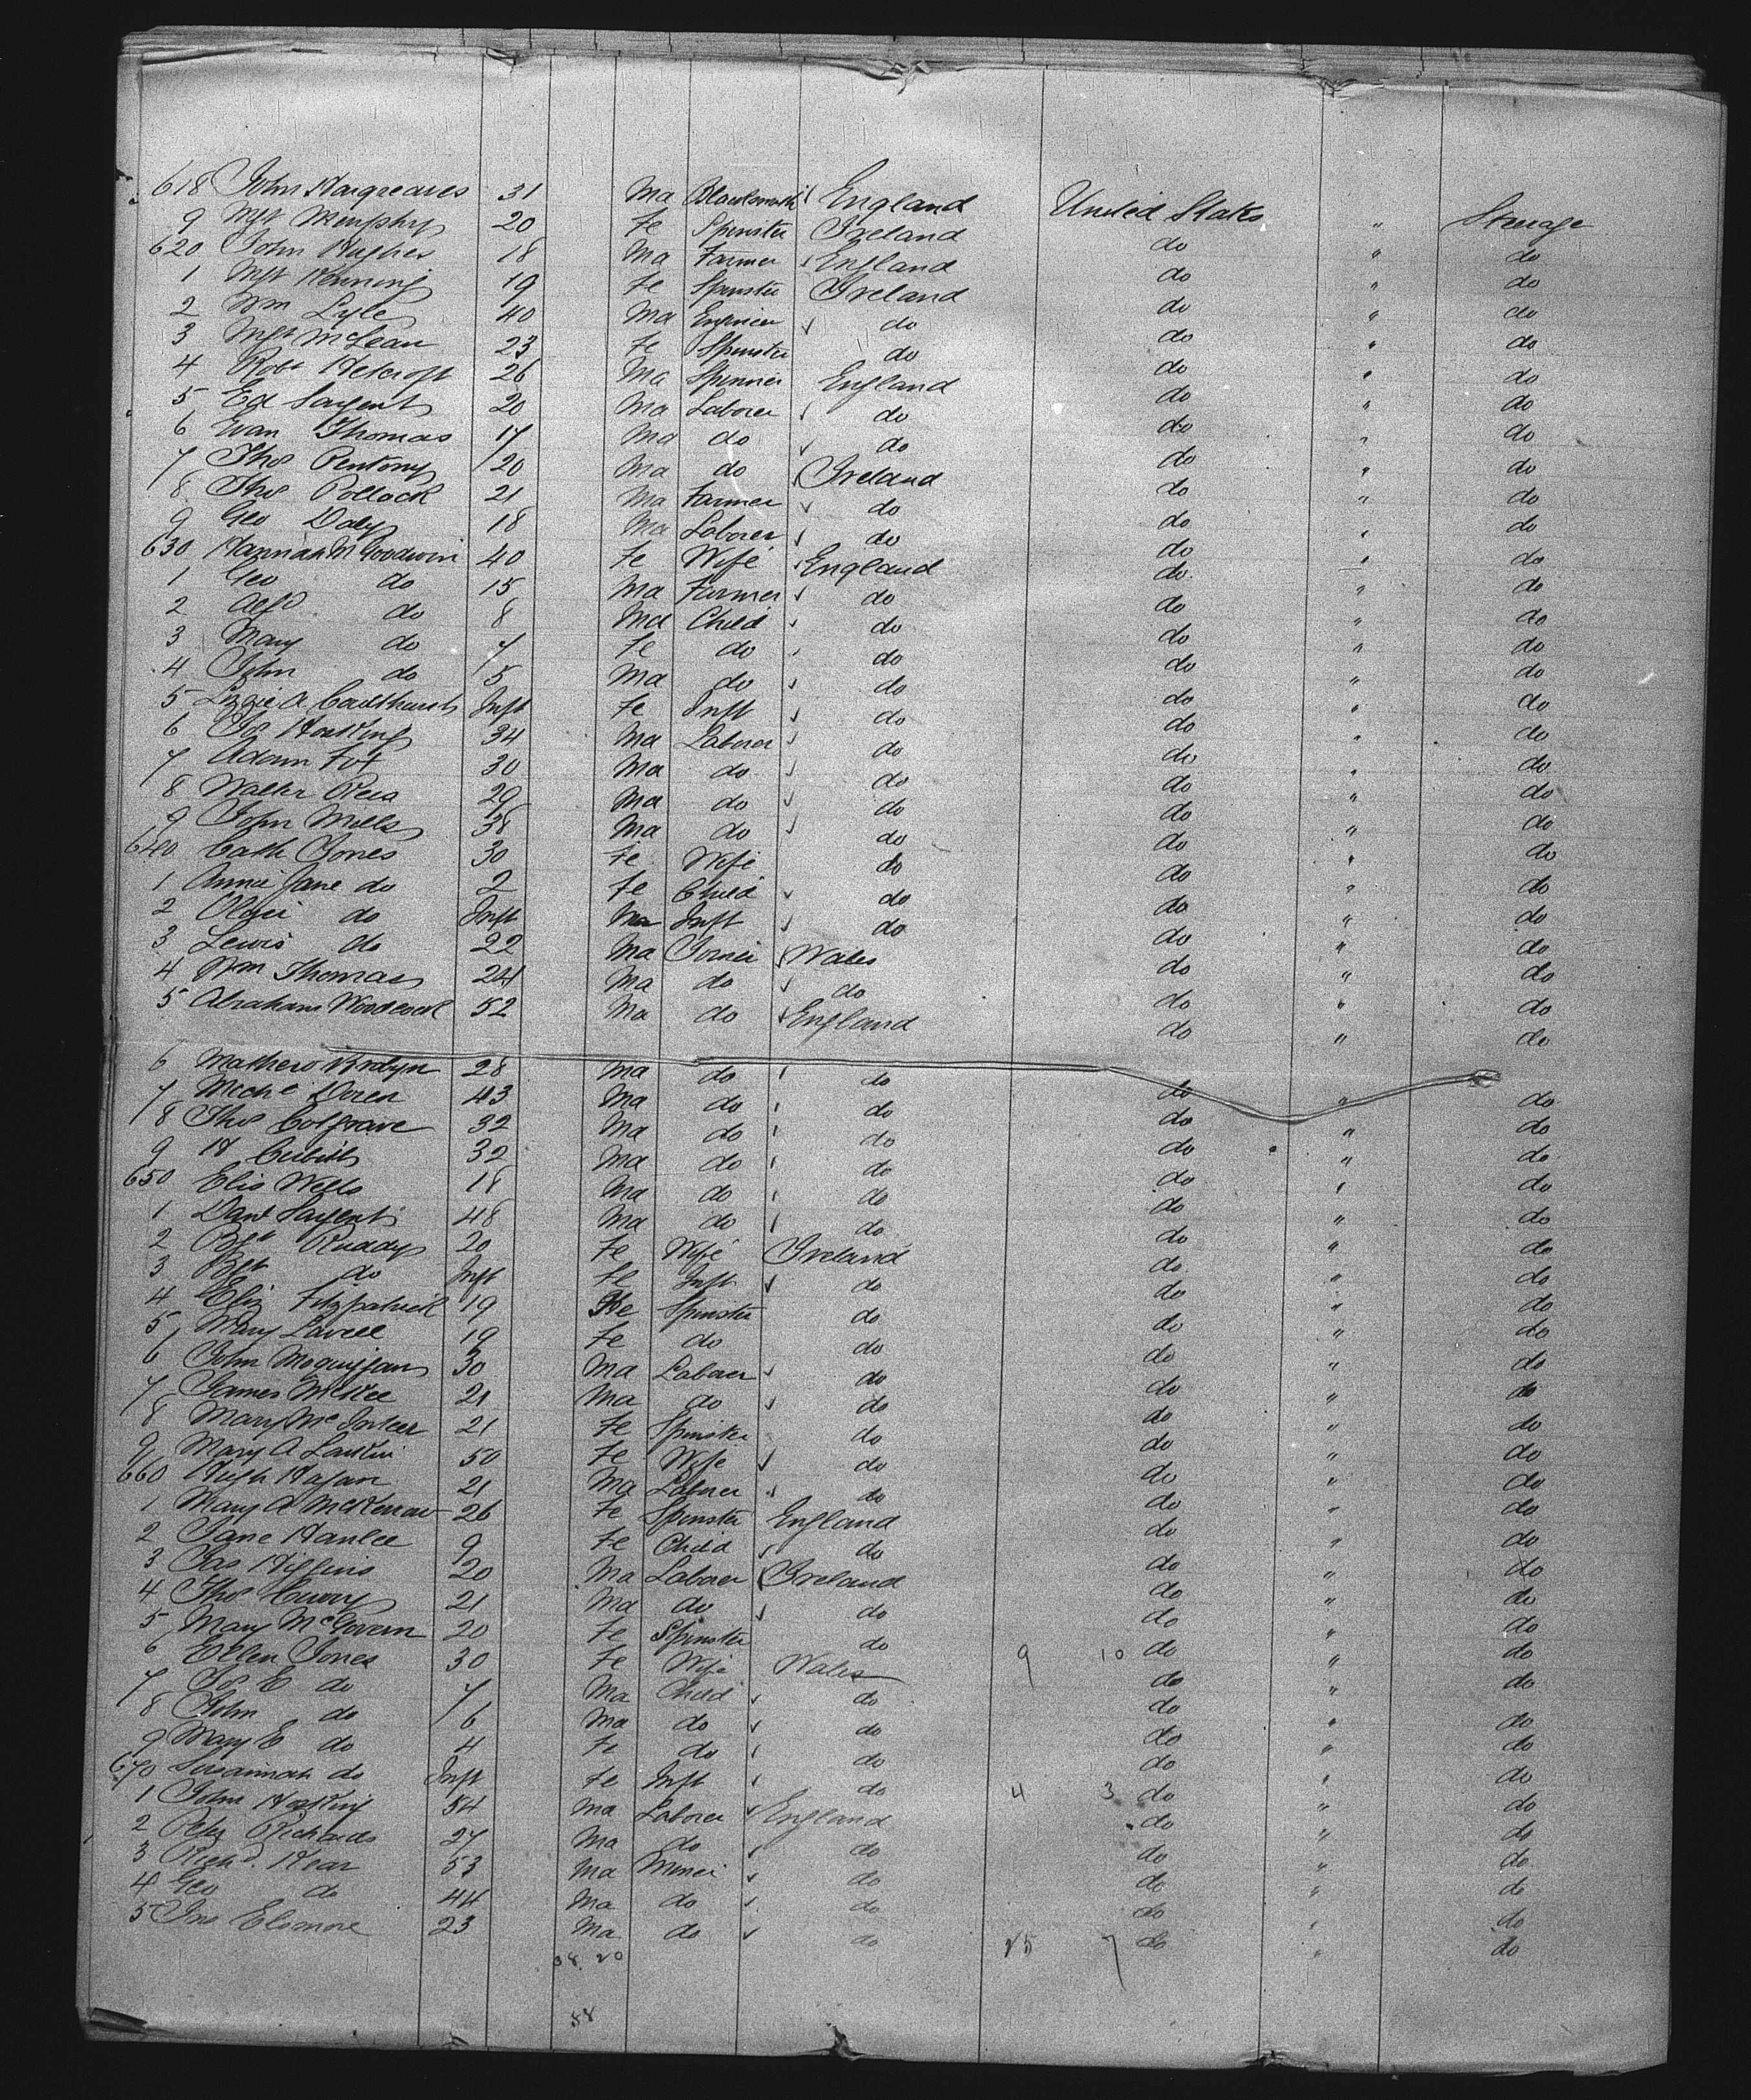 618 John Hargreaves 31 Ma Blacksmith England United States " Steerage
9 Mgt Murphy 20 Fe Spinster Ireland do " do
620 John Hughes 18 Ma Farmer England do " do
1 Mgt Kenning 19 Fe Spinster Ireland do " do
2 Wm Lyle 40 Ma Engineer do do " do
3 Mgt McLean 23 Fe Spinster do do " do
4 Robt 26 Ma Spinner England do " do
5 Ed Sargent 20 Ma Laborer do do " do
6 Evan Thomas 17 Ma do do do " do
7 Thos Pentony 20 Ma do Ireland do " do
8 Thos Pollock 21 Ma Farmer do do " do
9 Geo Daly 18 Ma Laborer do do " do
630 Hannah M Goodwin 40 Fe Wife England do " do
1 Geo do 15 Ma Farmer do do " do
2 Alfd do 8 Ma Child do do " do
3 Mary do 7 Fe do do do " do
4 John do 5 Ma do do do " do
5 Lizzie A Coulthurst Inft Fe Inft do do " do
6 Jos Hosking 34 Ma Laborer do do " do
7 Adam Fox 30 Ma do do do " do
8 Walter 29 Ma do do do " do
9 John Mills 38 Ma do do do " do
640 Cath Jones 30 Fe Wife do do " do
1 Annie Jane do 2 Fe Child do do " do
2 do Inft Ma Inft do do " do
3 Lewis do 22 Ma Wales do " do
4 Wm Thomas 24 Ma do do do " do
5 Abraham Woodcock 52 Ma do England do " do
6 28 Ma do do do " do
7 43 Ma do do do " do
8 Thos Colgrave 32 Ma do do do " do
9 H 32 Ma do do do " do
650 Wells 18 Ma do do do " do
1 Danl Sargent 48 Ma do do do " do
2 Bgt Ruddy 20 Fe Wife Ireland do " do
3 Bgt do Inft Fe Inft do do " do
4 Eliz Fitzpatrick 19 Fe Spinster do do " do
5 Mary Lavell 19 Fe do do do " do
6 John McGuiggan 30 Ma Laborer do do " do
7 James McKee 21 Ma do do do " do
8 Mary 21 Fe Spinster do do " do
9 Mary A Larkin 50 Fe Wife do do " do
660 Hugh Hagan 21 Ma Laborer do do " do
1 Mary A 26 Fe Spinster England do " do
2 Jane Hanlee 9 Fe Child do do " do
3 Jas Higgins 20 Ma Laborer Ireland do " do
4 Thos 21 Ma do do do " do
5 Mary McGovern 20 Fe Spinster do do " do
6 Ellen Jones 30 Fe Wife Wales 9 10 do " do
7 Jos E do 7 Ma Child do do " do
8 John do 6 Ma do do do " do
9 Mary E do 4 Fe do do do " do
670 Susannah do Inft Fe Inft do 4 3 do " do
1 John Hosking 54 Ma Laborer England do " do
2 Richards 27 Ma do do do " do
3 Richd. Kear 53 Ma Miner do do " do
4 Geo do 44 Ma do do do " do
5 Jno Elsmore 23 Ma do do 25 7 do " do
38 20
58